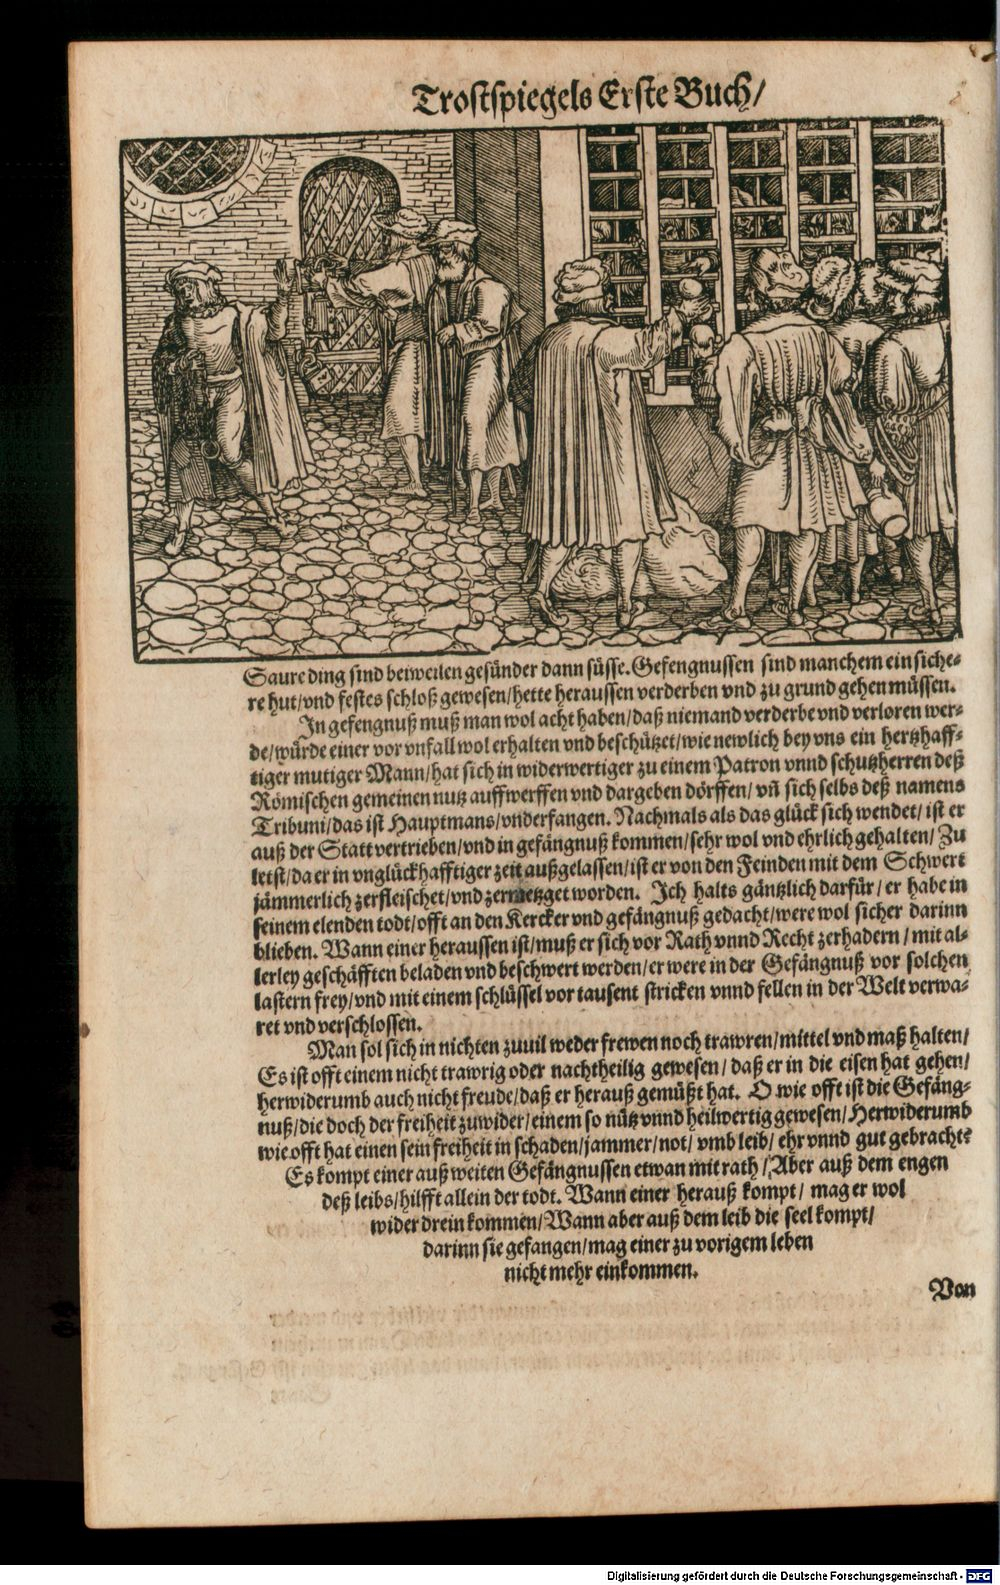 Trostspiegels Erste Buch/
Saure ding sind beiweilen gesünder dann süsse. Gefengnussen sind manchem ein siche-
re hut/vnd festes schloß gewesen/hette heraussen verderben vnd zu grund gehen müssen.
In gefengnuß muß man wol acht haben/daß niemand verderbe vnd verloren wer-
de/würde einer vor vnfall wol erhalten vnd beschützet/wie newlich bey vns ein hertzhaff-
tiger mutiger Mann/hat sich in widerwertiger zu einem Patron vnnd schutzherren deß
Römischen gemeinen nutz auffwerffen vnd dargeben dörffen/ vñ sich selbs deß namens
Tribuni/das ist Hauptmans/vnderfangen. Nachmals als das glück sich wendet/ ist er
auß der Statt vertrieben/vnd in gefängnuß kommen/sehr wol vnd ehrlich gehalten/ Zu
letst/da er in vnglückhafftiger zeit außgelassen/ist er von den Feinden mit dem Schwert
jämmerlich zerfleischet/vnd zermetzget worden. Ich halts gäntzlich darfür/ er habe in
seinem elenden todt/offt an den Kercker vnd gefängnuß gedacht/were wol sicher darinn
blieben. Wann einer heraussen ist/muß er sich vor Rath vnnd Recht zerhadern/ mit al-
lerley geschäfften beladen vnd beschwert werden/er were in der Gefängnuß vor solchen
lastern frey/vnd mit einem schlüssel vor tausent stricken vnnd fellen in der Welt verwa-
ret vnd verschlossen.
Man sol sich in nichten zuuil weder frewen noch trawren/mittel vnd maß halten/
Es ist offt einem nicht trawrig oder nachtheilig gewesen/ daß er in die eisen hat gehen/
herwiderumb auch nicht freude/daß er herauß gemüßt hat. O wie offt ist die Gefäng-
nuß/die doch der freiheit zuwider/einem so nütz vnnd heilwertig gewesen/Herwiderumb
wie offt hat einen sein freiheit in schaden/jammer/not/ vmb leib/ ehr vnnd gut gebracht?
Es kompt einer auß weiten Gefängnussen etwan mit rath/Aber auß dem engen
deß leibs/hilfft allein der todt. Wann einer herauß kompt/ mag er wol
wider drein kommen/Wann aber auß dem leib die seel kompt/
darinn sie gefangen/mag einer zu vorigem leben
nicht mehr einkommen.
Von
Digitalisierung gefördert durch die Deutsche Forschungsgemeinschaft - DFG